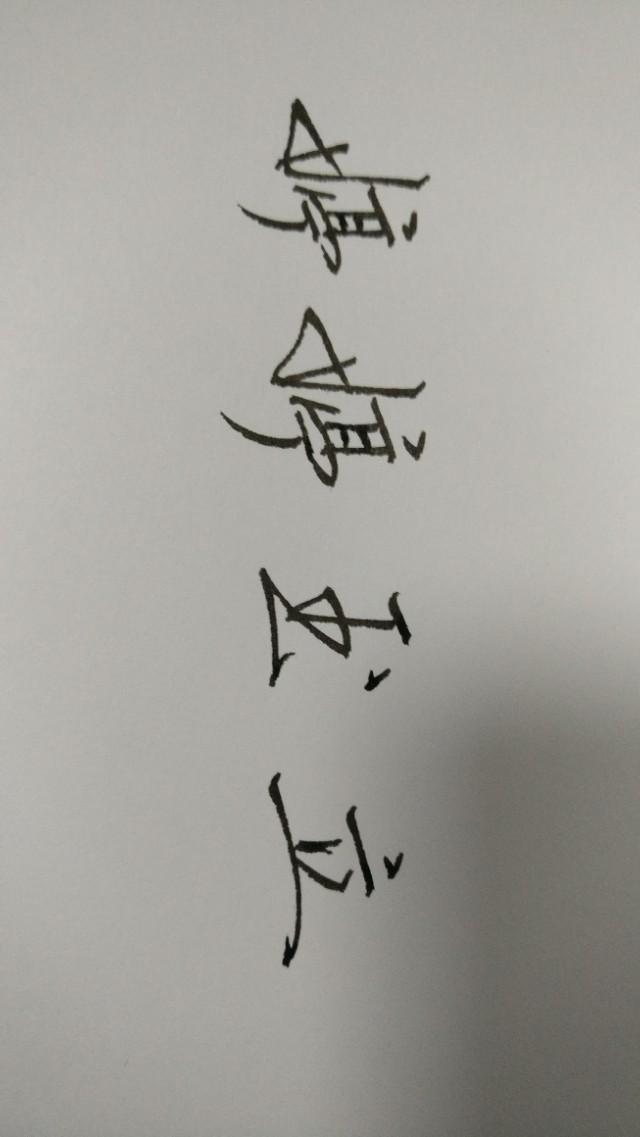 婷婷玉立